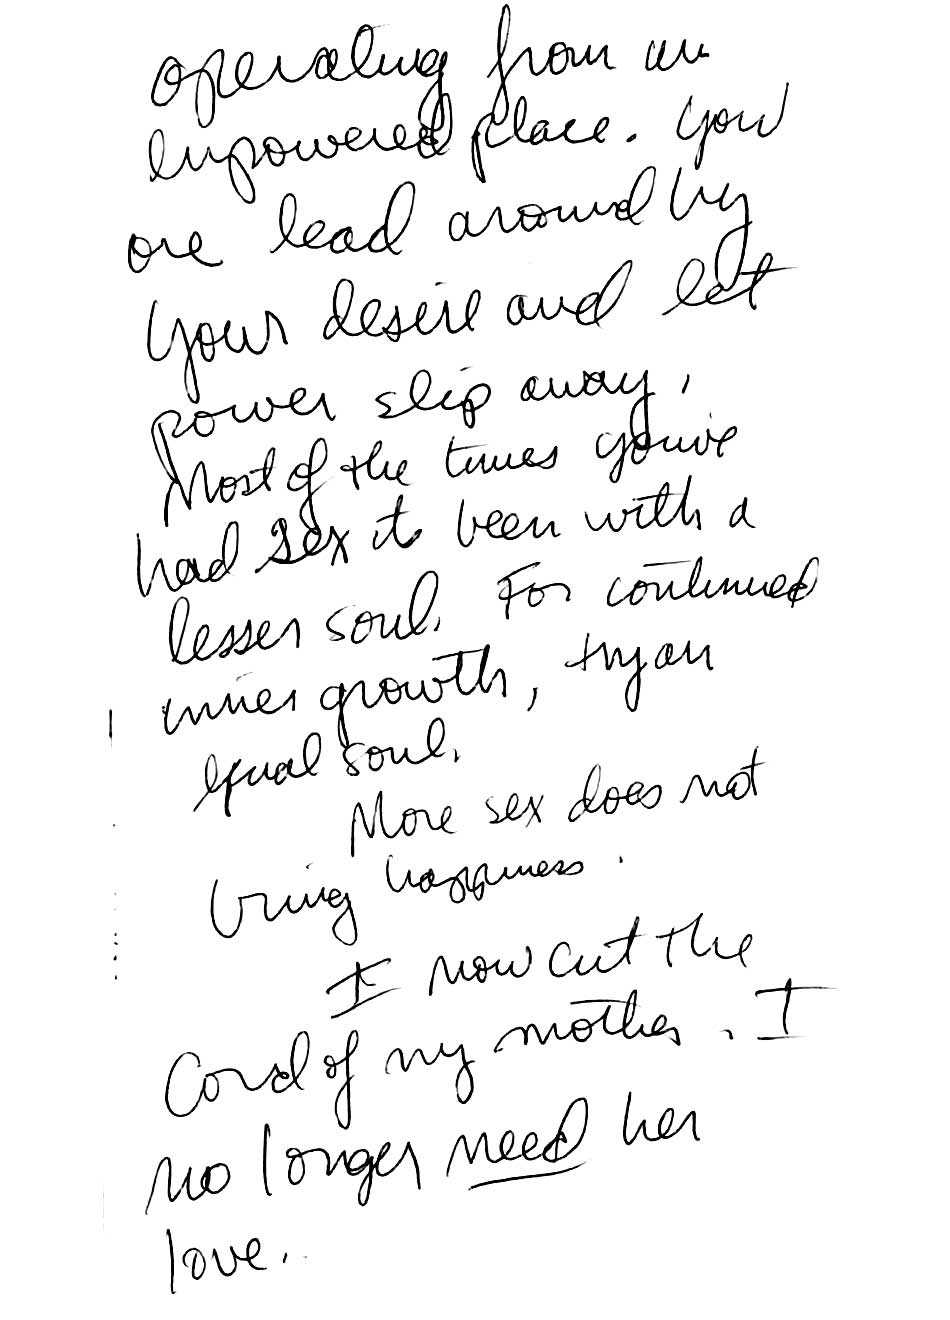 operating from an
empowered place. You
are lead around by
your desire and let
power slip away.
Most of the times you've
had sex its been with a
lesser soul. For continued
inner growth, try an
equal soul.
More sex does not
bring happiness.
I now cut the
Cord of my mother. I
no longer need her
love.